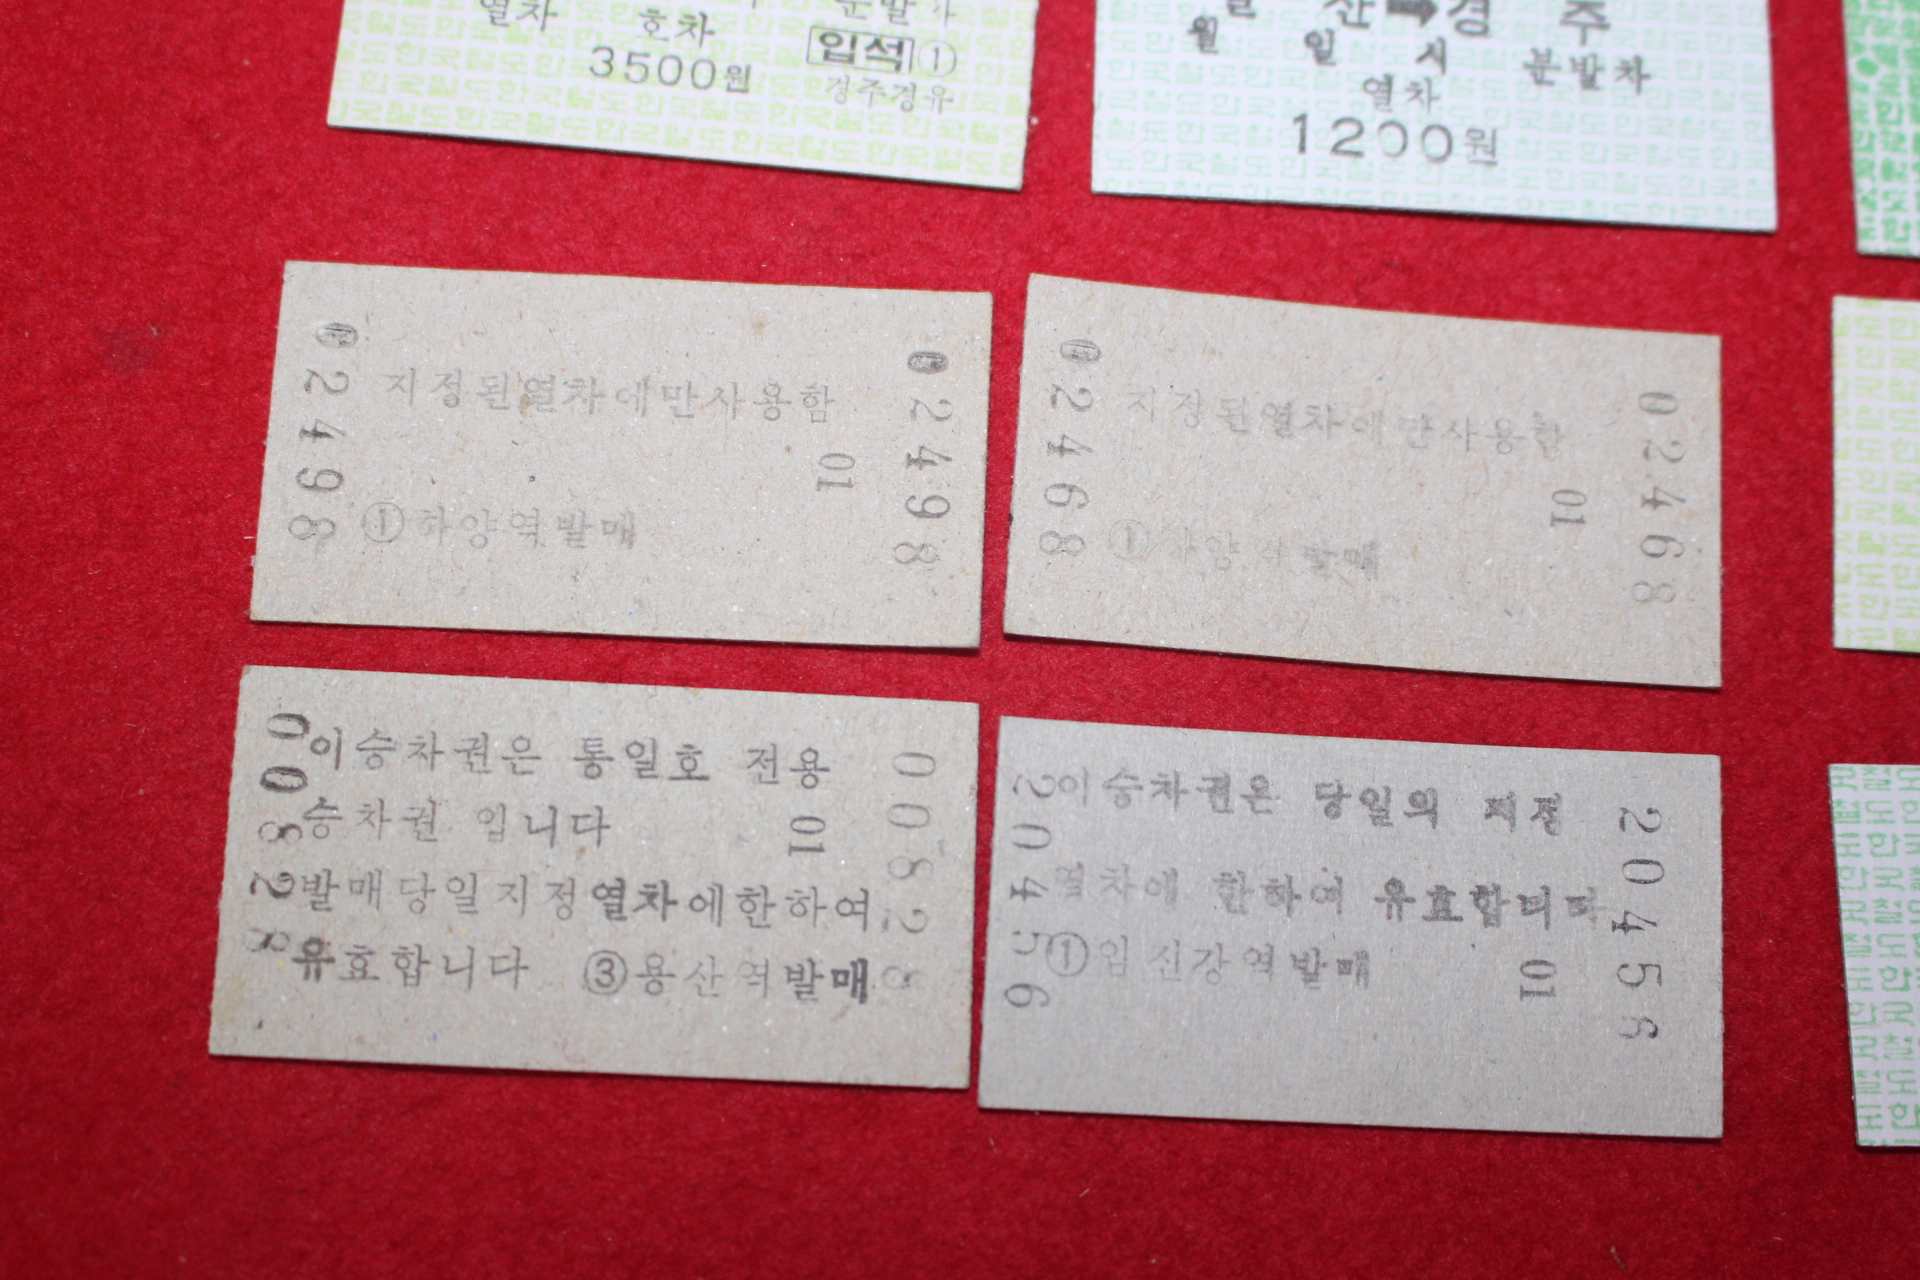 열차 호차
3500원
입석 ①
경주경유
산➡경 주
월 일 시 분발차
열차
1200원
02498
지정된열차에만사용함
01
①하양역발매
02498
02468
지정된열차에만사용함
01
①하양역발매
02468
00828
이승차권은 통일호 전용
승차권 입니다
01
발매당일지정열차에한하여
유효합니다 ③용산역발매
00828
20456
이승차권은 당일의 지정
열차에 한하여 유효합니다
①임진강역발매
01
20456